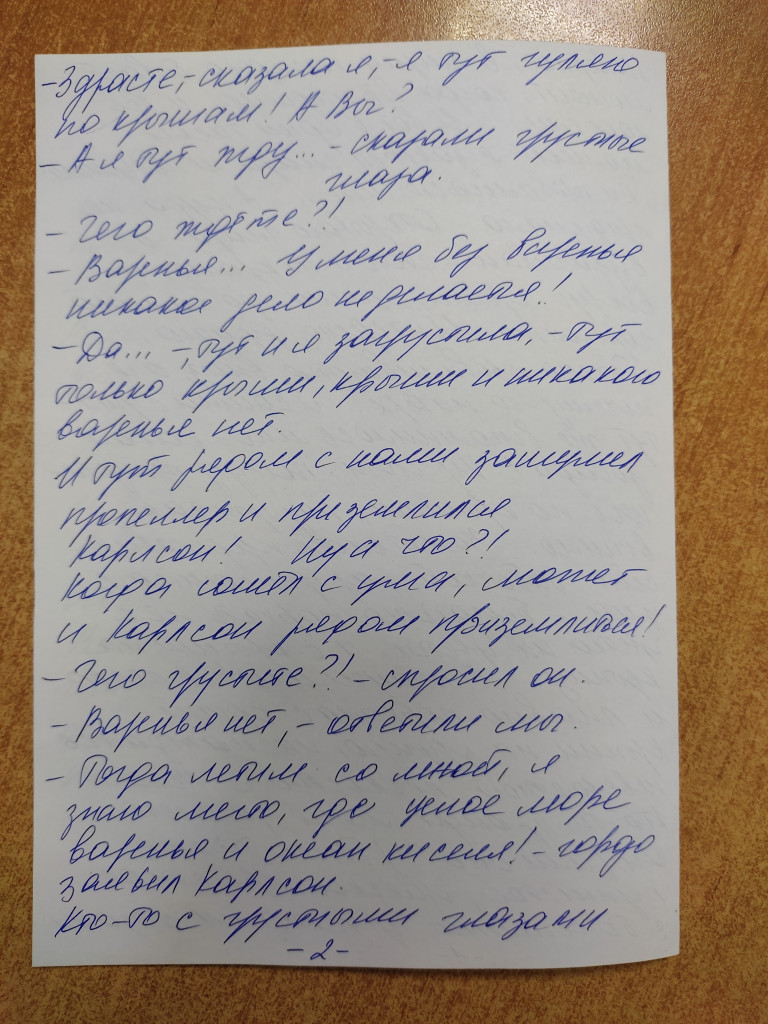 -Здрасте,-сказала я,-я тут гуляю
по крышам! А Вы?
- А я тут жду... - сказали грустные
глаза.
- Чего ждёте?!
- Варенья... У меня без варенья
никакое дело не делается!
- Да... -, тут и я загрустила, - тут
только крыши, крыши и никакого
варенья нет.
И тут рядом с нами зашумел
пропеллер и приземлился
Карлсон! Ну а что?!
Когда сошёл с ума, может
и Карлсон рядом приземлиться!
- Чего грустите?! - спросил он.
- Варенья нет, - ответили мы.
- Тогда летим со мной, я
знаю место, где целое море
варенья и океан киселя! - гордо
заявил Карлсон.
Кто-то с грустными глазами
- 2 -